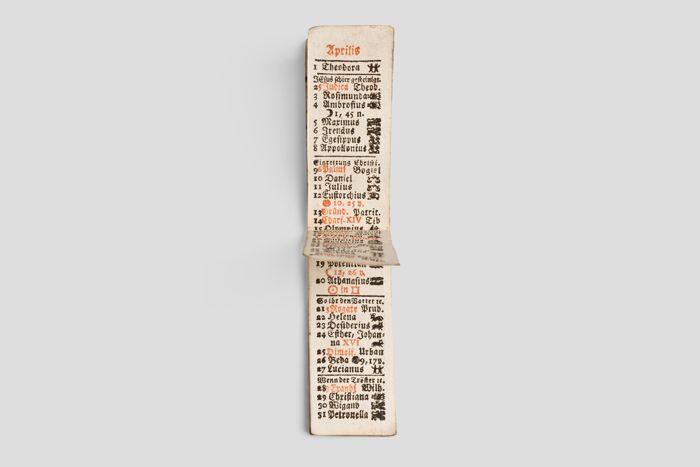 Aprilis
1 Theodora
JEsus schier gesteiniget.
2 5 Judica Theod.
3 Rosimunda
4 Ambrosius
☽ 1, 45 n.
5 Maximus
6 Irenäus
7 Egesippus
8 Appollonius
Einreitung Christi.
9 6 Palmſ Bogisl
10 Daniel
11 Julius
12 Eustorchius
10, 25 v.
13 Gründ. Patrit.
14 Charf. XIV Tib
15 Olympius
19 Potentian
☾ 12, 26 v.
20 Athanasius
☉ in ♊
So ihr den Vatter ꝛc.
21 5 Rogate Prud.
22 Helena
23 Desiderius
24 Esther, Johan-
na XVI
25 Himelf. Urban
26 Beda 9, 17 v.
27 Lucianus
Wenn der Tröster ꝛc.
28 Exaudi Wilh.
29 Christiana
30 Wigand
31 Petronella